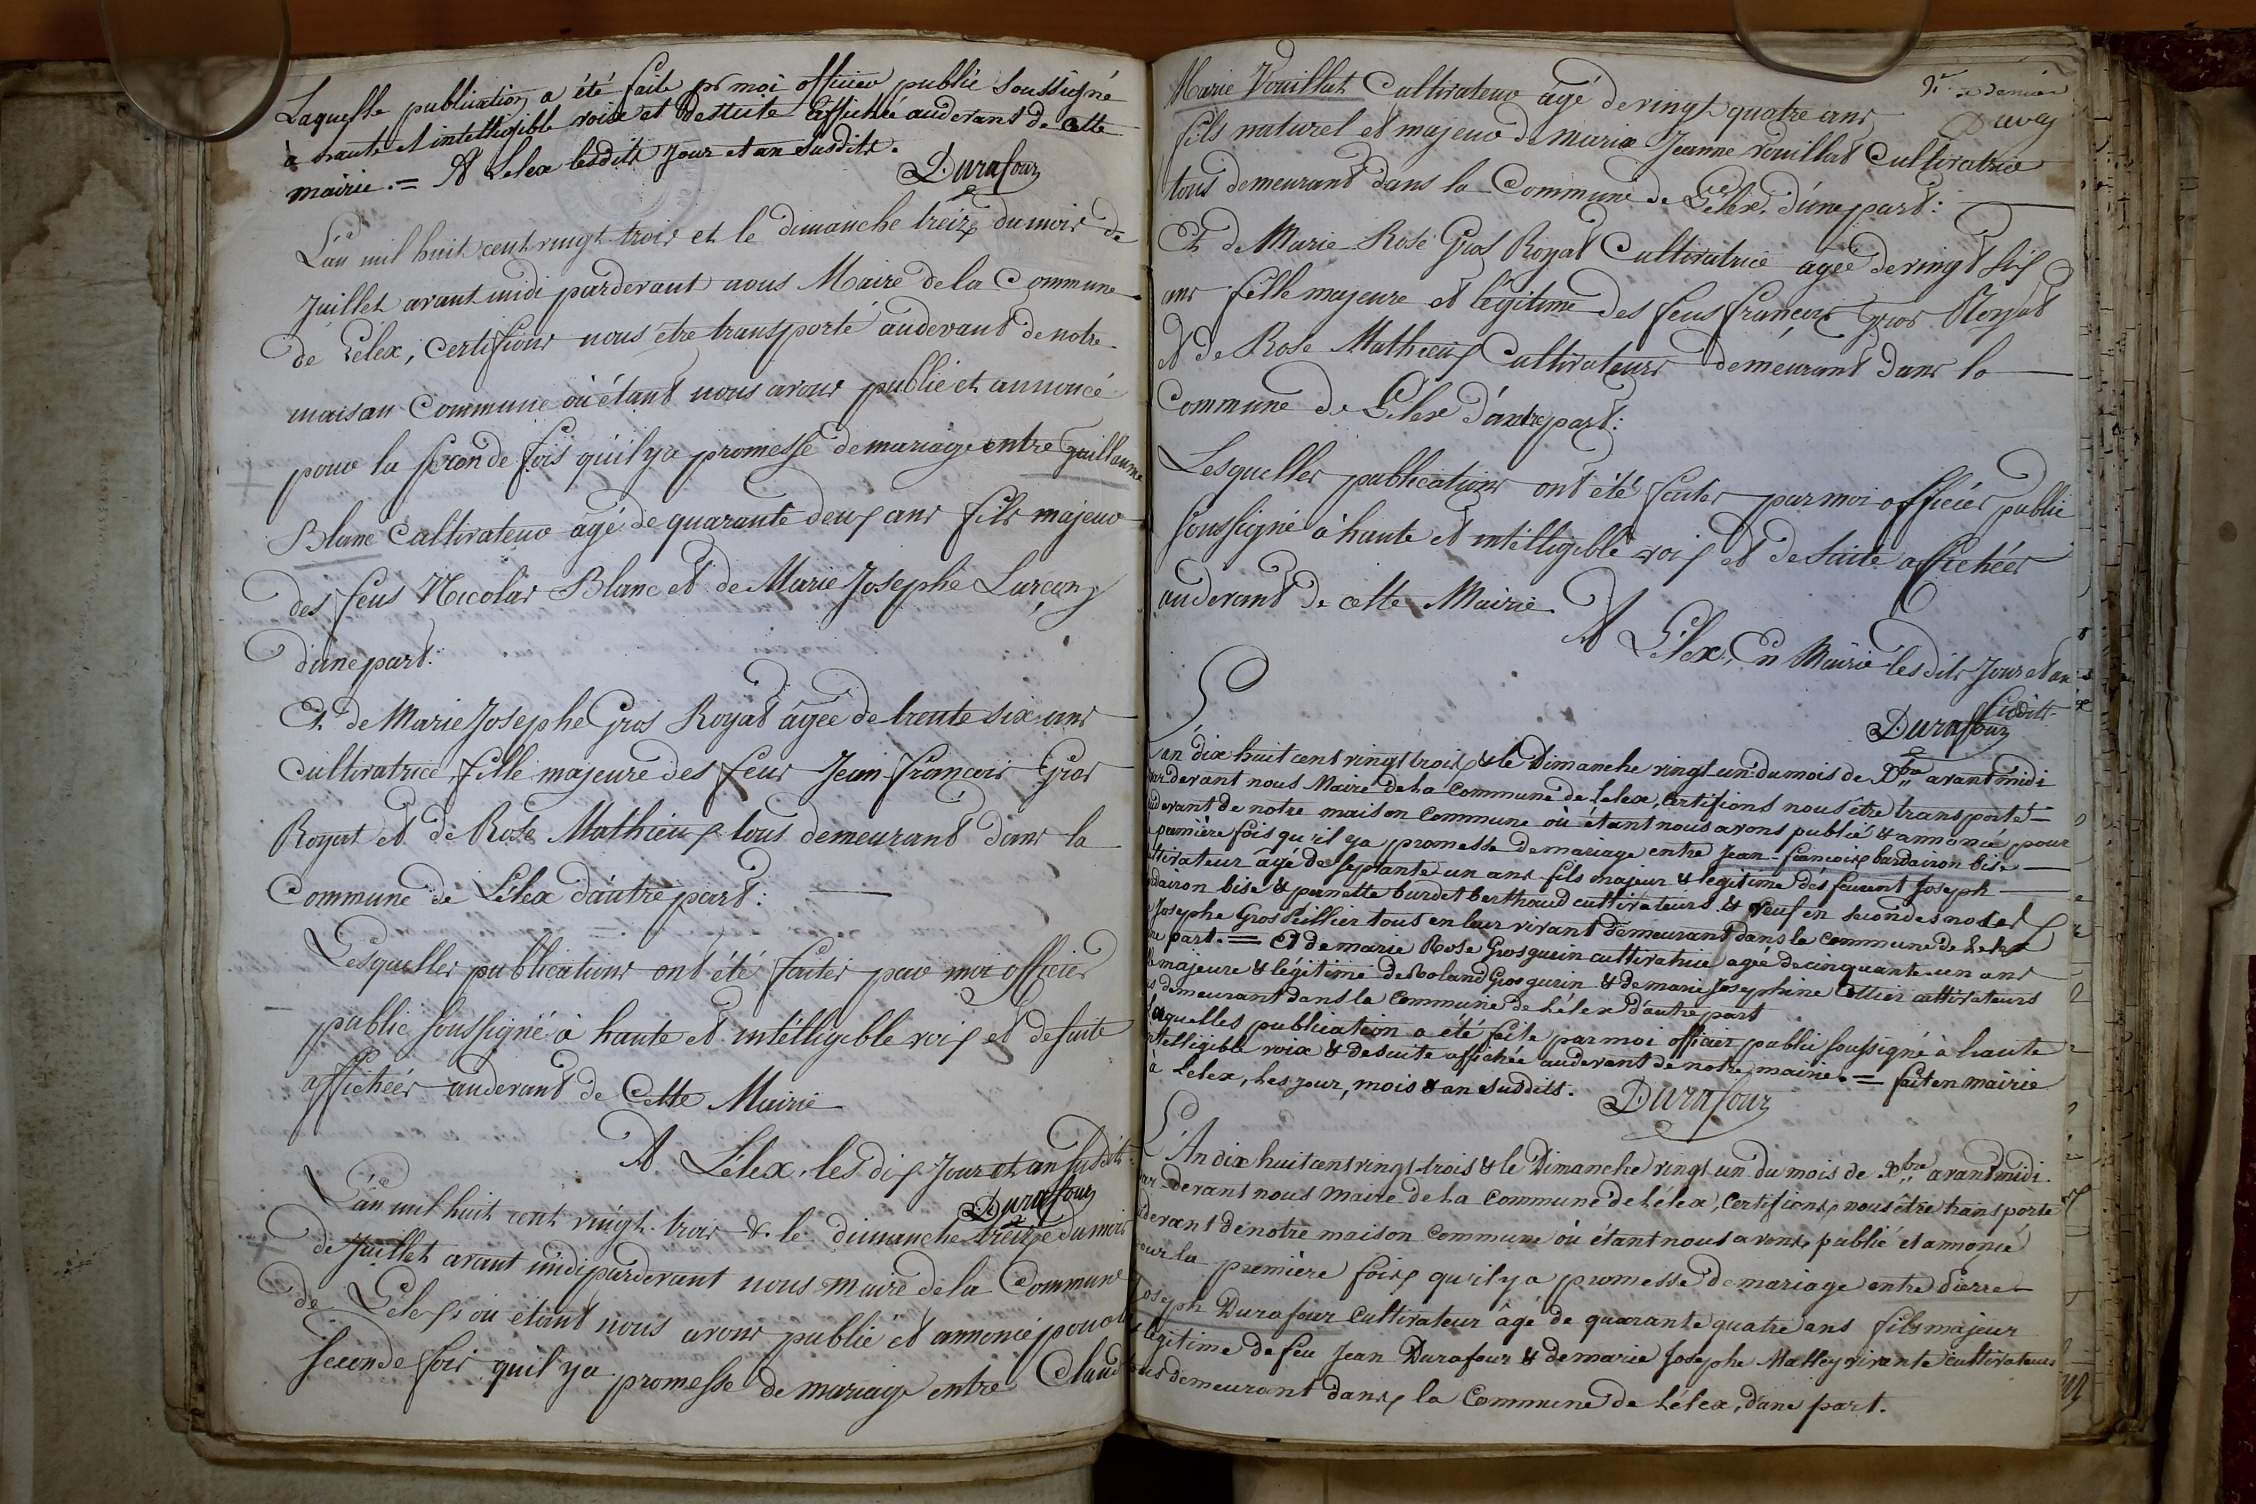 Laquelle publication a été faite pr moi officier public soussigné
à haute et intelligible voix et de suite affichée audevant de cette
mairie. = A Lélex lesdits jour et an susdits.
Durafour
L'an mil huit cent vingt trois et le dimanche treize du mois de
Juillet avant midi pardevant nous Maire de la Commune
de Lélex, certifions nous etre transporté audevant de notre
maison Commune où étant nous avons publié et annoncé
pour la seconde fois qu'il y a promesse de mariage entre Guillaume
Blanc Cultivateur âgé de quarante deux ans fils majeur
des feus Nicolas Blanc et de Marie Josephe Lançon
d'une part:
Et de Marie Josephe Gros Royat âgée de trente six ans
Cultivatrice, fille majeure des feus Jean-François Gros
Royat et de Rose Mathieux tous demeurant dans la
Commune de Lélex d'autre part:
Lesquelles publications ont été faites par moi officier
public soussigné à haute et intélligible voix et de suite
affichées audevant de Cette Mairie
A Lélex, les dix jour et an susdits
Durafour
L'an mil huit cent vingt trois & le dimanche treize du mois
de Juillet avant midi pardevant nous maire de la Commune
de Lélex où étant nous avons publié et annoncé pour la
seconde fois qu'il y a promesse de mariage entre Claude
9e et dernier
Duvay
Marie Vouillat Cultivateur âgé de vingt quatre ans
fils naturel et majeur de marie Jeanne Vouillat Cultivatrice
tous demeurant dans la Commune de Lélex, d'une part:
Et de Marie Rose Gros Royat Cultivatrice agée de vingt six
ans fille majeure et légitime des feus François Gros Royat
et de Rose Mathieux Cultivateurs demeurant dans la
Commune de Lélex d'autre part:
Lesquelles publications ont été faites par moi officier public
soussigné à haute et intélligible voix et de suite affichées
audevant de cette Mairie.
A Lélex, En Mairie les dits jour et an
susdits
Durafour
L'an dix huit cent vingt trois & le Dimanche vingt-un du mois de Xbre avant midi
par devant nous Maire de la commune de Lelex, certifions nous être transporté
audevant de notre maison commune où étant nous avons publié & annoncé pour
première fois qu'il y a promesse de mariage entre Jean-françois bardairon bise
cultivateur âgé de septante un ans fils majeur & légitime des feurent Joseph
bardairon bise & pernette burdet berthoud cultivateurs & veuf en secondes noces
Josephe Gros Pellier tous en leur vivant demeurant dans la commune de Lelex
une part. = Et de marie Rose Grosgurin cultivatrice agée de cinquante-un ans
fille majeure & légitime de Roland Grosgurin & de marie Josephine Collier cultivateurs
tous demeurant dans la Commune de Lélex d'autre part
Laquelles publication a été faite par moi officier public soussigné à haute
intelligible voix & de suite affichée audevant de notre mairie. = fait en mairie
à Lelex, les jour, mois & an susdits. Durafour
L'An dix huit cent vingt-trois & le Dimanche vingt un du mois de Xbre avant midi
par-devant nous maire de la commune de Lélex, certifions nous être transporté
audevant de notre maison commune où étant nous avons publié et annoncé
pour la première fois qu'il y a promesse de mariage entre Pierre
Joseph Durafour cultivateur âgé de quarante quatre ans fils majeur
& légitime de feu Jean Durafour & de marie Josephe Mattey vivante cultivateurs
tous demeurant dans la Commune de Lélex, d'une part.